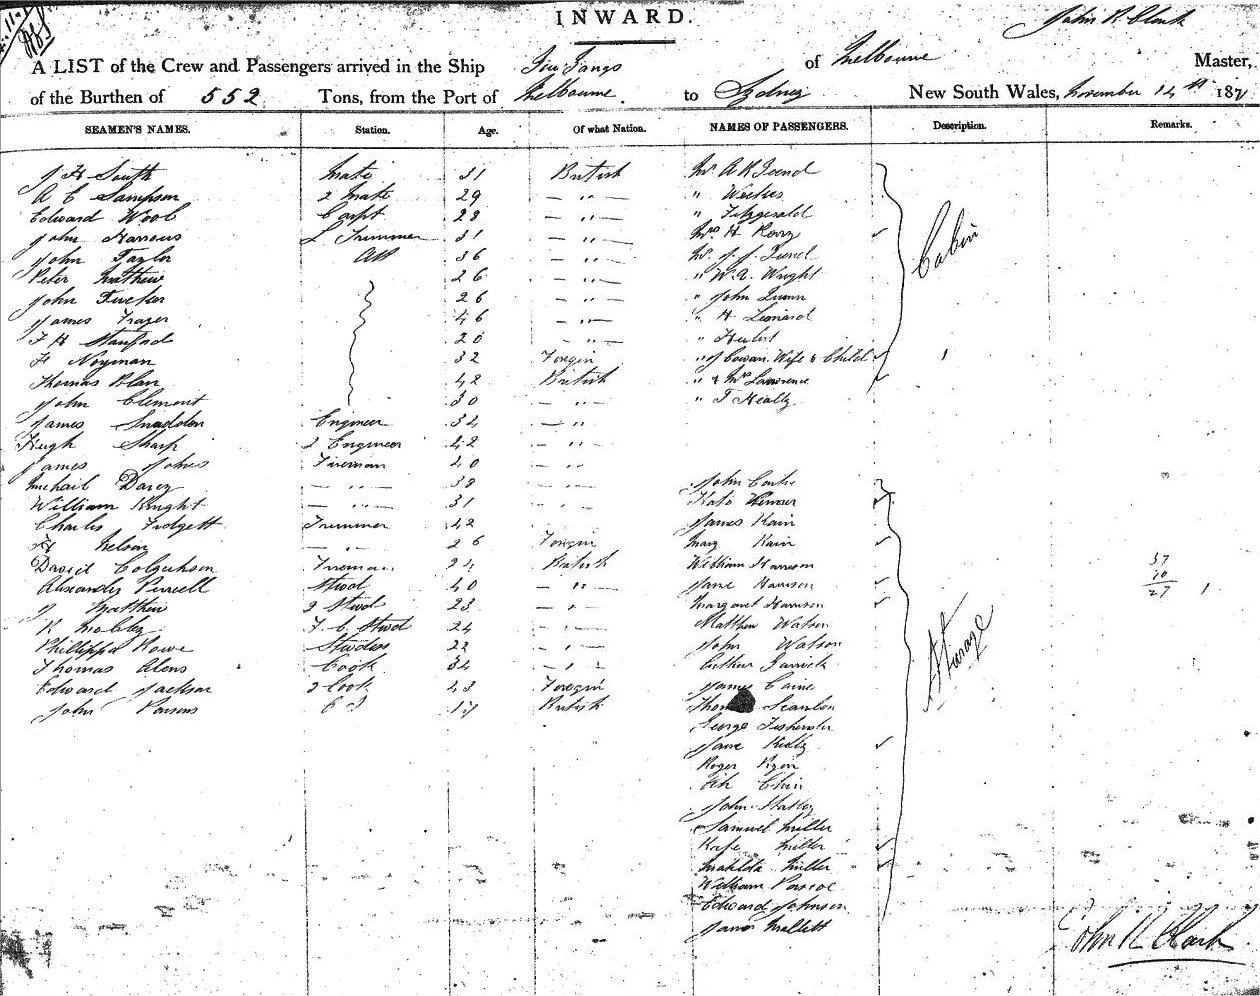 INWARD.
John R. Clark
A LIST of the Crew and Passengers arrived in the Ship of Melbourne Master,
of the Burthen of 552 Tons, from the Port of Melbourne to Sydney New South Wales, November 14th 187
SEAMEN'S NAMES. Station. Age. Of what Nation. NAMES OF PASSENGERS. Description. Remarks.
J H South Mate 31 British Mr A R
A C Sampson 2 Mate 29 — " — "
Edward Wood Carpt 28 — " — " Fitzgerald
John L Trimmer 31 — " — Mrs H
John Taylor AB 36 — " — Mr J. J.
Peter Mathew 26 — " — " W. A. Wright
John Tucker 26 — " — " John Quinn
James Frazer 46 — " — " H Leonard
F H Stanford 20 — " — "
H Noyman 32 Foregin " J Cowan Wife & Child
Thomas 42 British " & Mrs Lawrence
John Clement 30 — " — " T Healty
Cabin
James Snaddon Engineer 34 — " —
Hugh Sharp 2 Engineer 42 — " —
James Johns Fireman 40 — " —
Michail Darcy — " — 38 — " — John
William Knight — " — 31 — " — Kate
Charles Fidgett Trimmer 42 — " — James Kain
Nelson — " — 26 Foregin Mary Kain
David Colquhson Fireman 24 British William Harrison
Alexander Purcell Stwd 40 — " — Jane Harrison
J Matthew 2 Stwd 23 — " — Margaret Harrison
37
10
27
R Mobley F. C. Stwd 24 — " — Matthew Watson
Phillippa Rowe Stwdes 22 — " — John Watson
Thomas Cook 34 — " — Arthur Garrick
Edward Jackson 2 Cook 23 Foregin James Caine
John Parsons 17 British Scanlon
Sturage
George
Jane
Roger Ryan
Ah Chin
John
Samuel Miller
Kate Miller
Matilda Miller
William Pascoe
Edward Johnson
James Mallett
John R Clark